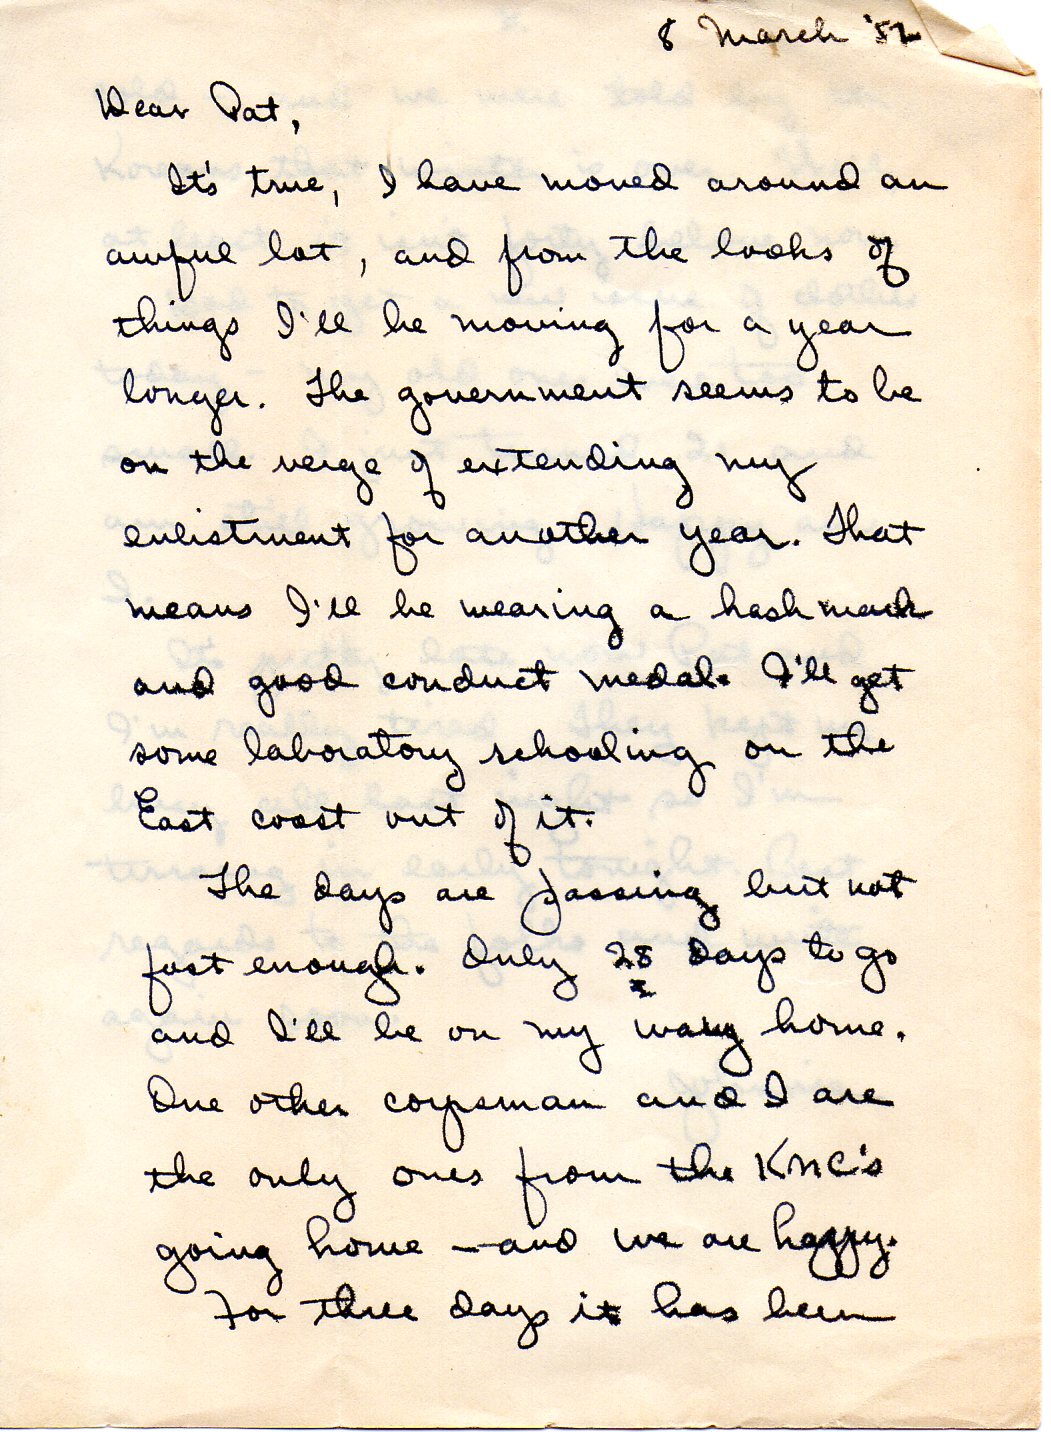 8 March '52
Dear Pat,
It's true, I have moved around an
awful lot, and from the looks of
things I'll be moving for a year
longer. The government seems to be
on the verge of extending my
enlistment for another year. That
means I'll be wearing a hash mark
and good conduct medal. I'll get
some laboratory schooling on the
East coast out of it.
The days are passing but not
fast enough. Only 28 days to go
and I'll be on my way home.
One other corpsman and I are
the only ones from the KMC's
going home — and we are happy.
For three days it has been